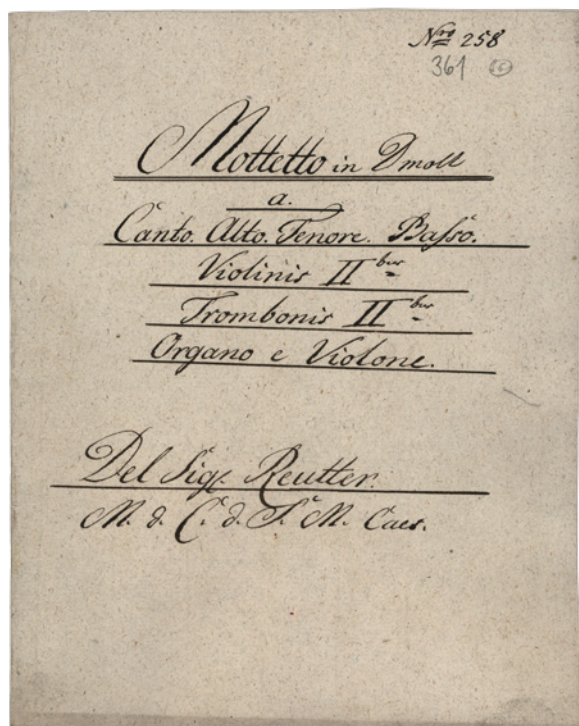 Nro 258
361
Mottetto in Dmoll
a.
Canto. Alto. Tenore. Basso.
Violinis II bus
Trombonis II bus
Organo e Violone.
Del Sig. Reutter.
M. d. C. d. S. M. Caes.